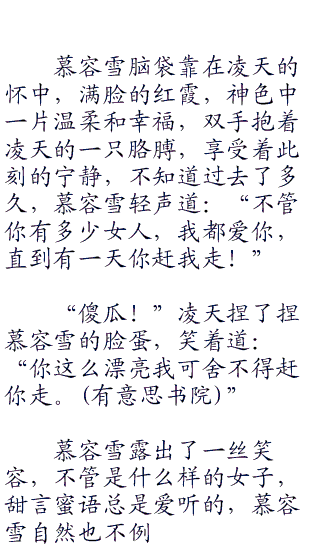 慕容雪脑袋靠在凌天的
怀中，满脸的红霞，神色中
一片温柔和幸福，双手抱着
凌天的一只胳膊，享受着此
刻的宁静，不知道过去了多
久，慕容雪轻声道：“不管
你有多少女人，我都爱你，
直到有一天你赶我走！”
“傻瓜！”凌天捏了捏
慕容雪的脸蛋，笑着道：
“你这么漂亮我可舍不得赶
你走。(有意思书院)”
慕容雪露出了一丝笑
容，不管是什么样的女子，
甜言蜜语总是爱听的，慕容
雪自然也不例